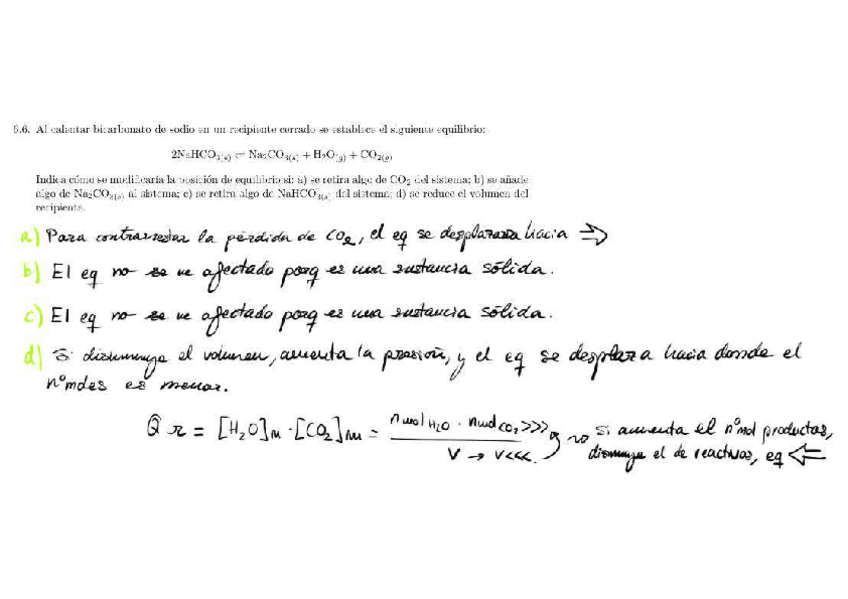 6.6. Al calentar bicarbonato de sodio en un recipiente cerrado se establece el siguiente equilibrio:
2NaHCO3(s) ⇌ Na2CO3(s) + H2O(g) + CO2(g)
Indica cómo se modificaría la posición de equilibrio si: a) se retira algo de CO2 del sistema; b) se añade
algo de Na2CO3(s) al sistema; c) se retira algo de NaHCO3(s) del sistema; d) se reduce el volumen del
recipiente.
a) Para contrarrestar la pérdida de CO2, el eq se desplazara hacia ⇒
b) El eq no se ve afectado porq es una sustancia sólida.
c) El eq no se ve afectado porq es una sustancia sólida.
d) Si disminuye el volumen, aumenta la presión, y el eq se desplaza hacia donde el
nº mdes es menor.
Qr = [H2O]m · [CO2]m = nmol H2O · nmol CO2 >>> no si aumenta el nº mol productos,
V → V<<< disminuye el de reactivos, eq ⇐